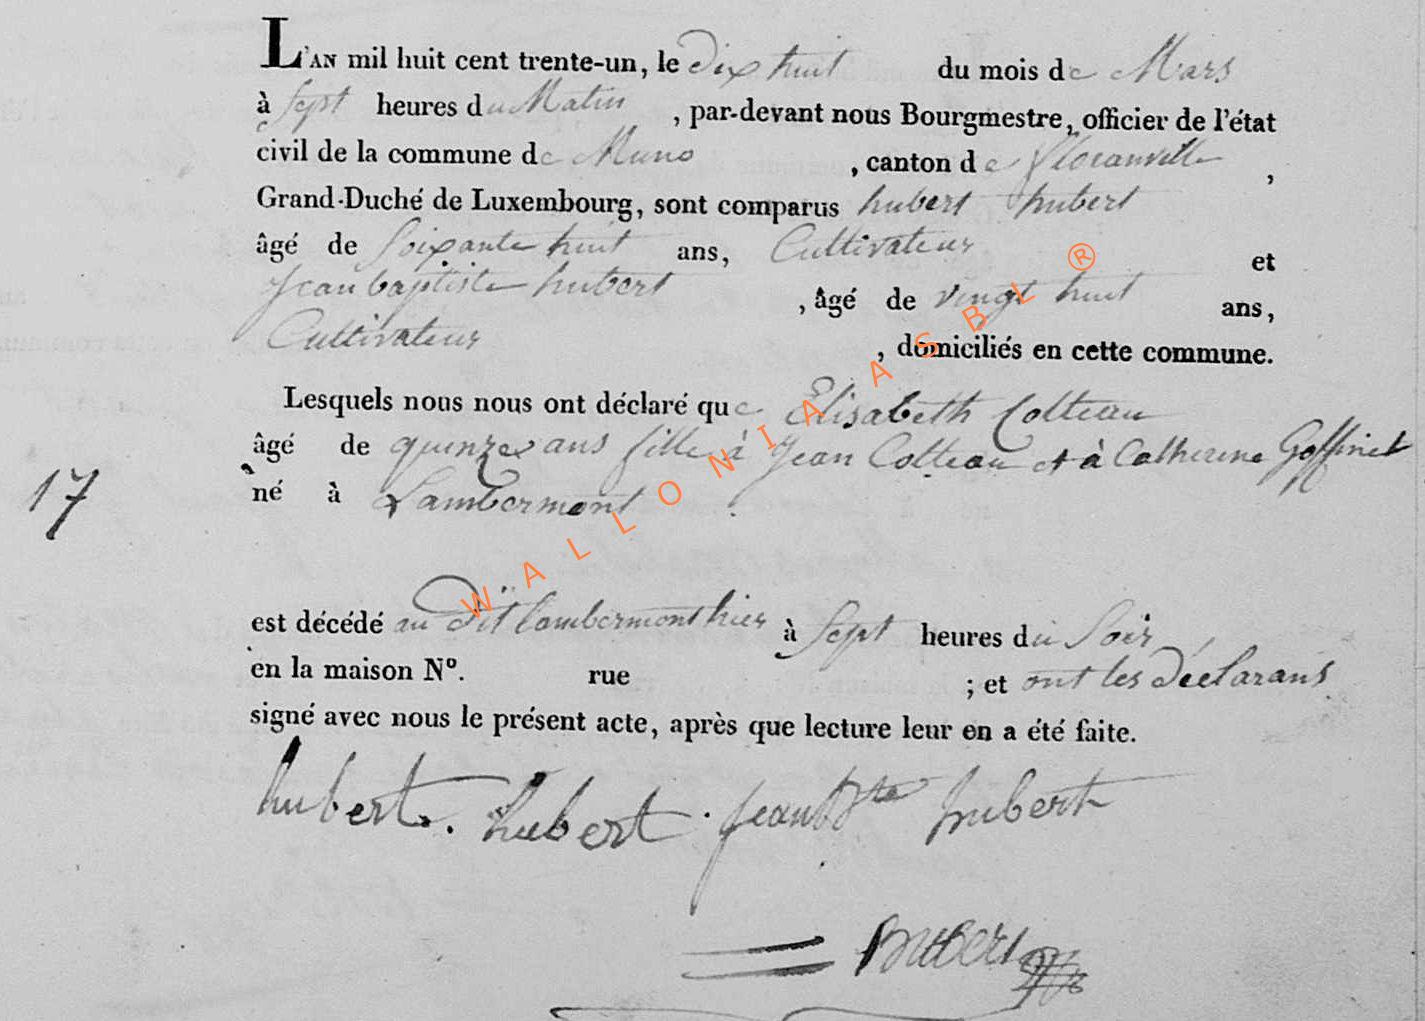 L'AN mil huit cent trente-un, le dix huit du mois de Mars
à sept heures du Matin, par-devant nous Bourgmestre, officier de l'état
civil de la commune de Muno, canton de florenville,
Grand-Duché de Luxembourg, sont comparus hubert hubert
âgé de soixante huit ans, Cultivateur et
Jean baptiste hubert, âgé de vingt huit ans,
Cultivateur, domiciliés en cette commune.
Lesquels nous nous ont déclaré que Elisabeth Colteau
âgé de quinze ans fille à Jean Colteau et à Catherine Goffinet
17
né à Lambermont.
est décédé au dit lambermont hier à sept heures du soir
en la maison Nº. rue ; et ont les déclarans
signé avec nous le présent acte, après que lecture leur en a été faite.
hubert. hubert. jean Bte hubert
WALLONIA ASBL ®